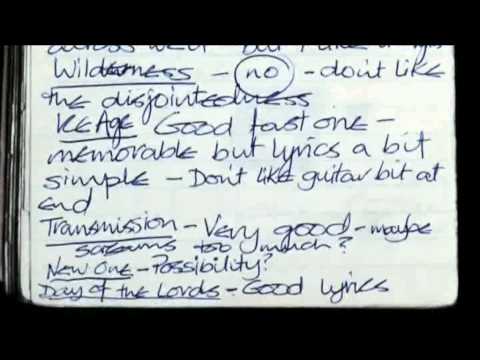 across well - but I like
Wilderness - no - don't like
the disjointedness
Ice Age Good fast one -
memorable but lyrics a bit
simple - Don't like guitar bit at
end
Transmission - Very good - maybe
screams too much?
New One - Possibility?
Day of the Lords - Good lyrics